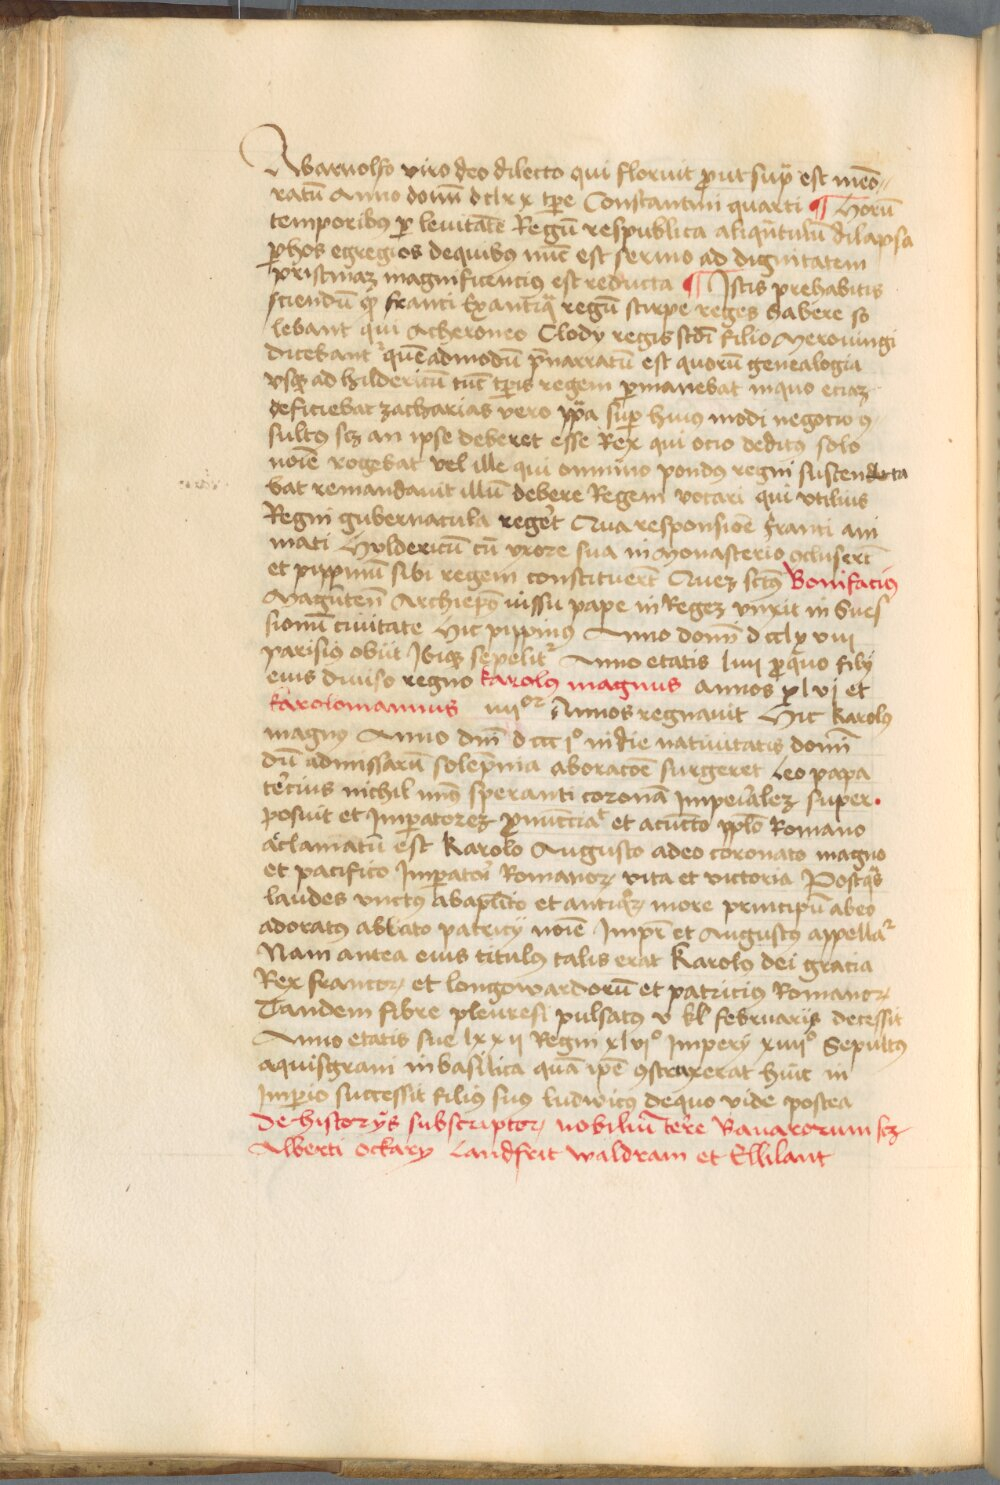 Abarnolfo viro deo dilecto qui floruit ꝓut supᷓ est meō„
ratū Anno domī dclxx tꝑe Constantini quarti ¶ Horū
temporibꝰ ꝑ leuitatē Regū respublica aliqᷓntulū dilapsa
ꝑ hos egregios dequibꝰ nūc est sermo ad dignitatem
pristinaꝫ magnificenciꝰ est reducta ¶ Istis prehabitis
sciendū ꝙ franci Exantiqᷓ regū stirpe reges habere so
lebant qui Acheroneo Clody regis scdi filio Merouingi
dicebantᷣ quēadmodū p̄narratū est quorū genealogia
vsqꝫ ad hildericū tūc tꝑis regem ꝑmanebat inquo eciaꝫ
deficiebat zacharias vero pp̄a suꝑ huiꝰ modi negocio ꝯ„
sultꝰ scꝫ an ipse deberet esse Rex qui ocio deditꝰ solo
noīe rogebat vel ille qui omnino pondꝰ regni suscenta
bat remandauit illū debere Regem vocari qui vtilius
Regni gubernacula reger̄t Qua responsiōe franci ani
mati Hyldericū cū vxore sua in Monasterio ꝯcluserūt
et pippinū sibi regem constituerūt Queꝫ sctꝰ Bonifaciꝰ
Magūten̄ Archiep̄s iussu pape in Regeꝫ vnxit in Sues
sionū ciuitate Hic pippinꝰ Anno domī dcclxviii
parisiꝰ obiit Ibiqꝫ sepelitᷣ Anno etatis liiii ꝓ quo filij
eius diuiso regno karolꝰ magnus annos xlvj et
karolomannus iiiiᵒʳ Annos regnauit Hic karolꝰ
magnꝰ Anno dm̄ dcccjᵒ in die natiuitatis domī
dū admissarū solēpnia aboracōe surgeret Leo papa
tercius nichil minꝰ speranti coronā Imperialeꝫ super
posuit et Imꝑatoreꝫ ꝓnūcciaᷣ et acūcto ppl̄o Romano
acclamatū est Karolo Augusto adeo coronato magno
et pacifico Imꝑatori Romanoꝝ vita et victoria Postqᷓ
laudes vnctꝰ abap̄lico et antiqᷓꝝ more principū abeo
adoratꝰ ablato patricij noīe Imꝑr et Augustꝰ appellaᷣ
Nam antea eius titulꝰ talis erat Karolꝰ dei gracia
Rex francoꝝ et longowardorū et patriciꝰ Romanoꝝ
Tandem fibre pleuresi pulsatꝰ v kl̄ februarijs decessit
Anno etatis sue lxxii Regni xlviᵒ Impery xiiiiᵒ Sepultꝰ
aquisgrani in basilica quā ipē ꝯstruxerat huic in
Imꝑio successit filiꝰ suꝰ ludwicꝰ dequo vide postea
De historijs subscriptoꝝ nobiliū terre Bauarorum scꝫ
Alberti Ockary Landfrit Waldram et Ellilant